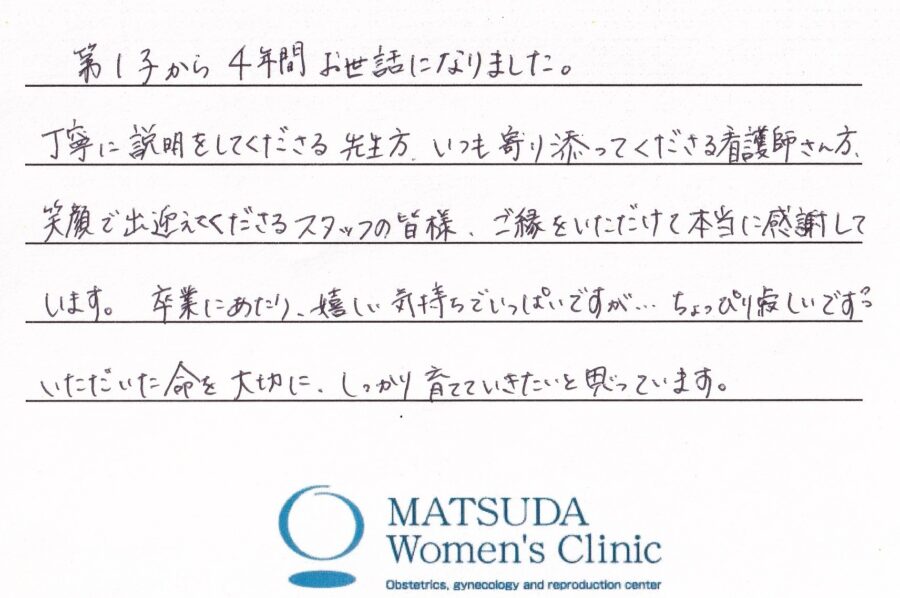 第1子から4年間お世話になりました。
丁寧に説明をしてくださる先生方、いつも寄り添ってくださる看護師さん方、
笑顔で出迎えてくださるスタッフの皆様、ご縁をいただけて本当に感謝して
います。 卒業にあたり、嬉しい気持ちでいっぱいですが… ちょっぴり寂しいです
いただいた命を大切に、しっかり育てていきたいと思っています。
MATSUDA
Women's Clinic
Obstetrics, gynecology and reproduction center